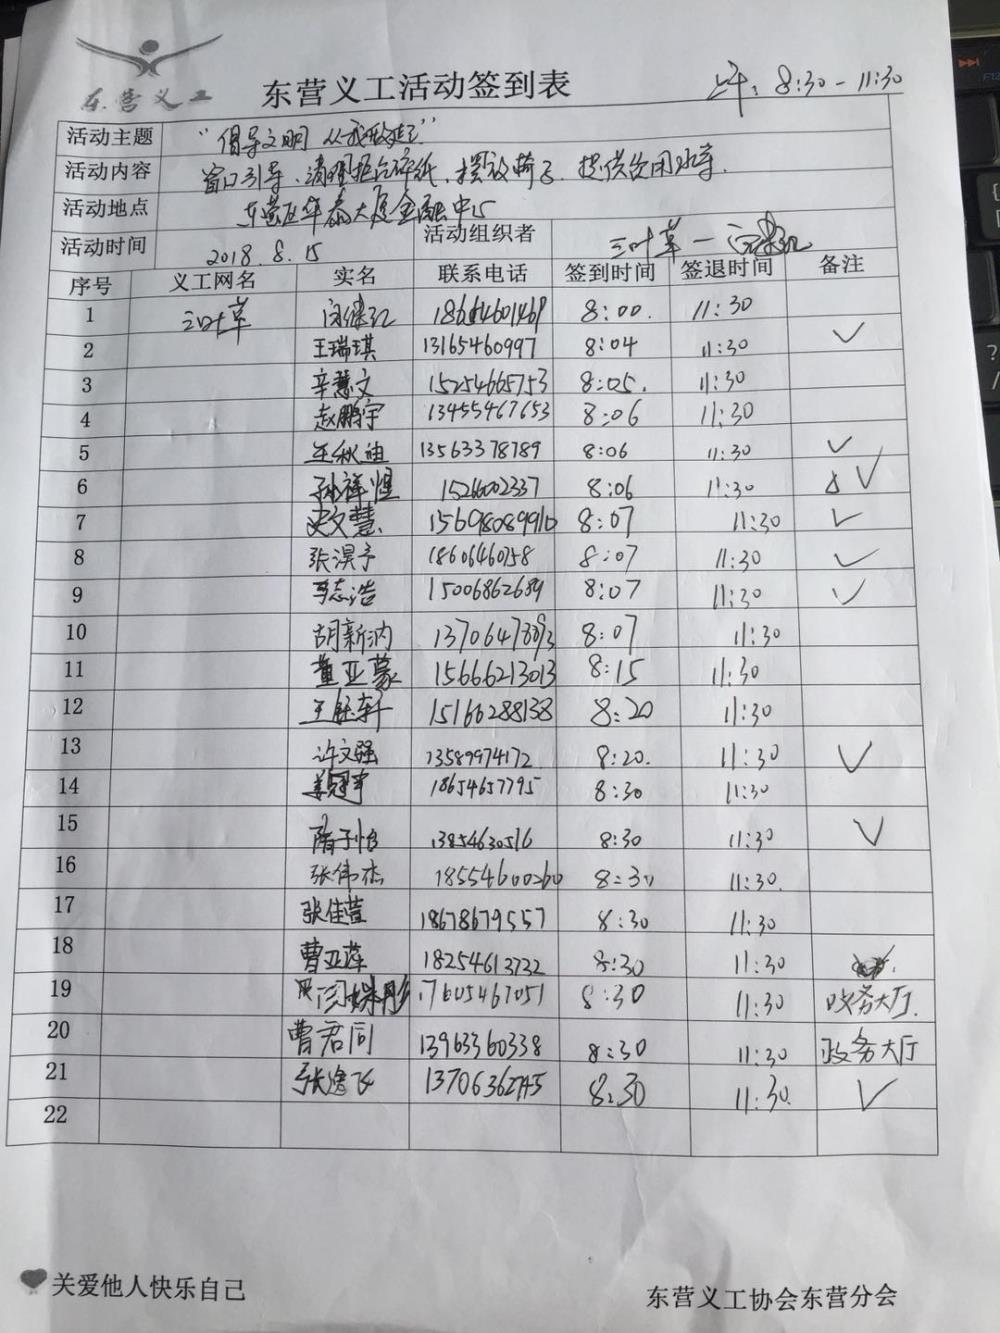 东营义工
东营义工活动签到表
上午: 8:30-11:30
活动主题 "倡导文明 从我做起"
活动内容 窗口引导、清理柜台碎纸、摆放椅子、提供饮用水等.
活动地点 东营区华泰大厦金融中心
活动时间 2018.8.15 活动组织者 三叶草一
序号 义工网名 实名 联系电话 签到时间 签退时间 备注
1 三叶草 8:00. 11:30
2 王瑞琪 13165460997 8:04 11:30 ✓
3 辛慧文 15254665753 8:05. 11:30
4 赵鹏宇 13455467653 8:06 11:30
5 王秋迪 13563378789 8:06 11:30 ✓
6 孙祥煜 1526002337 8:06 11:30 ✓
7 史文慧 8:07 11:30 ✓
8 张淏予 18606460758 8:07 11:30 ✓
9 李志浩 15006862689 8:07 11:30 ✓
10 胡新汭 8:07 11:30
11 董亚蒙 15666213013 8:15 11:30
12 王钰轩 15166288138 8:20 11:30
13 许文强 13589974172 8:20. 11:30 ✓
14 姜冠宇 18654657795 8:30 11:30
15 隋子怡 13854630516 8:30 11:30 ✓
16 张伟杰 18554600260 8:30 11:30.
17 张佳萱 18678679557 8:30 11:30
18 曹亚萍 18254613732 8:30 11:30
19 17605467051 8:30 11:30 政务大厅.
20 曹君同 13963360338 8:30 11:30 政务大厅
21 张逸飞 13706362745 8:30 11:30. ✓
22
关爱他人快乐自己
东营义工协会东营分会